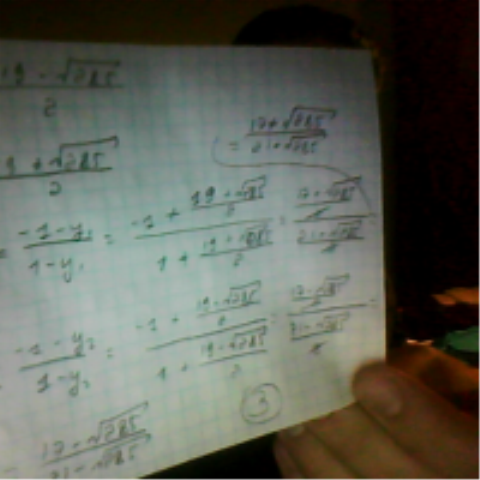 19 - √285 / 2
= 17+√285 / 21+√285
19 + √285 / 2
= -1-y₁ / 1-y₁ = -1 + 19+√285/2 / 1 + 19+√285/2 = 17+√285 / 21+√285 =
= -1-y₂ / 1-y₂ = -1 + 19-√285/2 / 1 + 19-√285/2 = 17-√285 / 21-√285 =
3
= 17-√285 / 21-√285